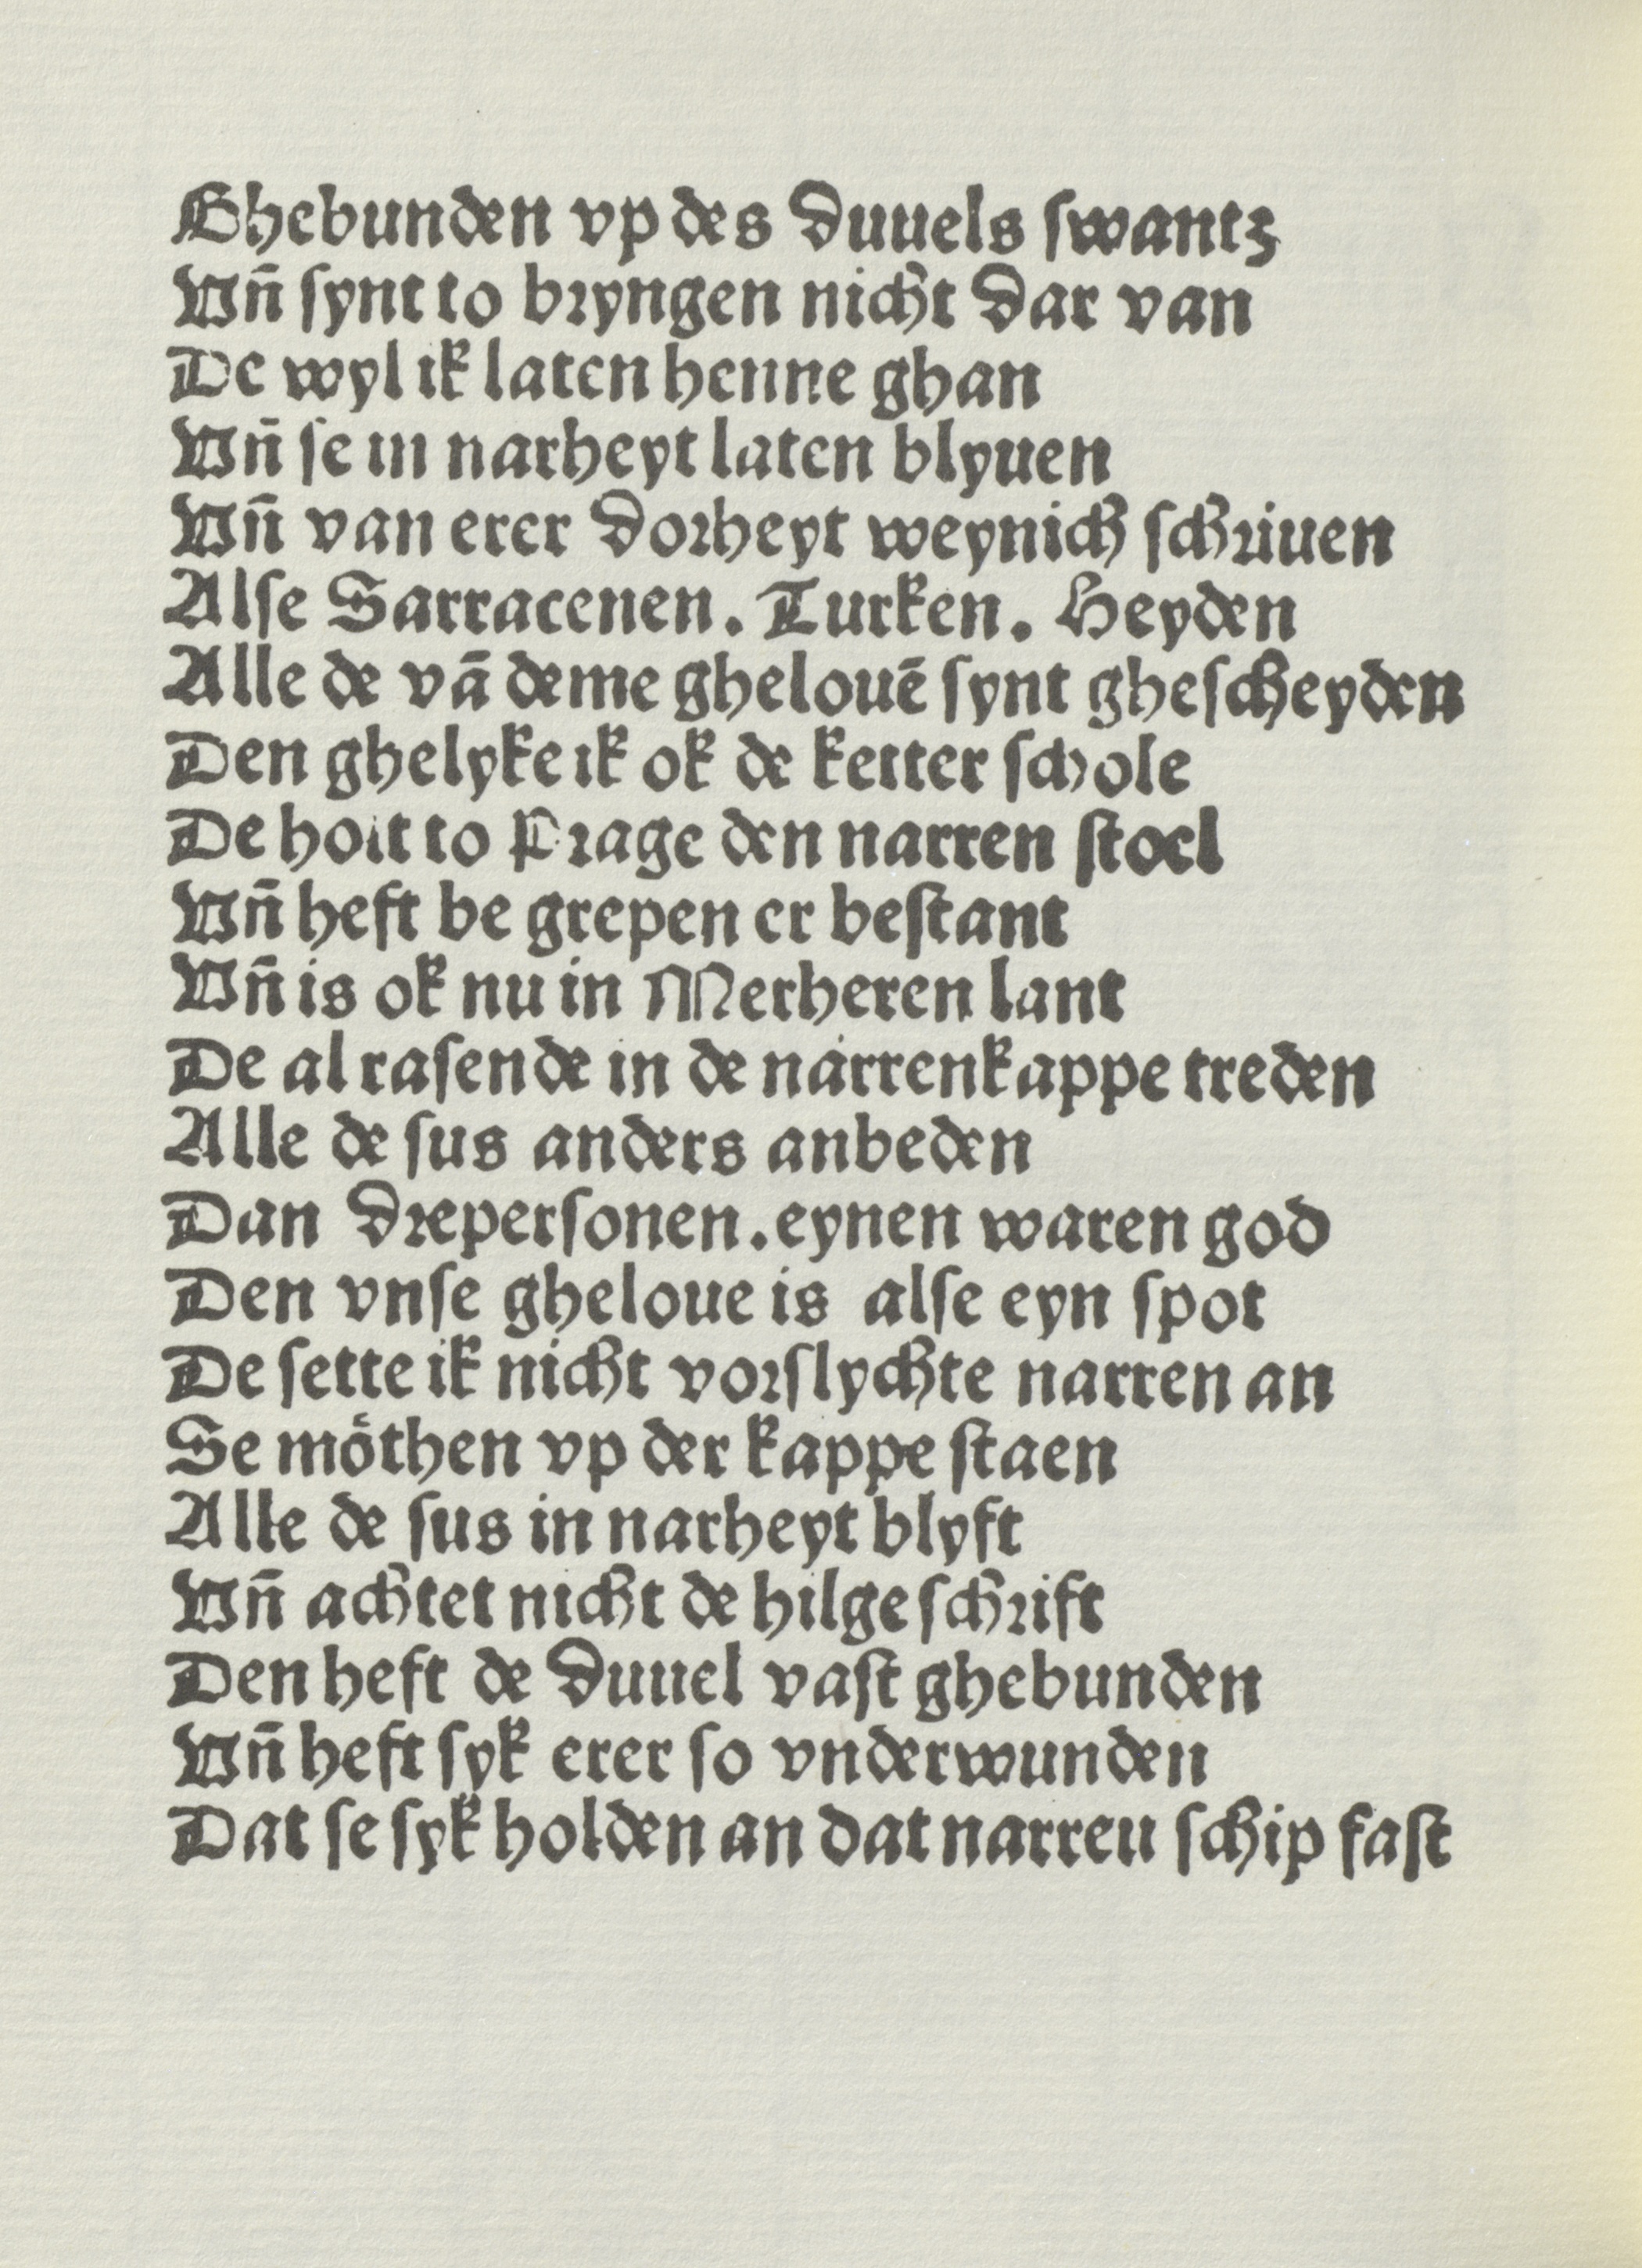 Ghebunden vp des duuels ſwantz
Vn̄ ſynt to bryngen nicht dar van
De wyl ik laten henne ghan
Vn̄ ſe in narheyt laten blyuen
Vn̄ van erer dorheyt weynich ſchriuen
Alſe Sarracenen. Turken. Heyden
Alle de vā deme ghelouē ſynt gheſcheyden
Den ghelyke ik ok de ketter ſchole
De holt to Prage den narren ſtoel
Vn̄ heft be grepen er beſtant
Vn̄ is ok nu in Merheren lant
De al raſende in de narrenkappe treden
Alle de ſus anders anbeden
Dan drepersonen. eynen waren god
Den vnſe gheloue is alſe eyn ſpot
De ſette ik nicht vorſlychte narren an
Se moͤthen vp der kappe ſtaen
Alle de ſus in narheyt blyft
Vn̄ achtet nicht de hilge ſchrift
Den heft de duuel vaſt ghebunden
Vn̄ heft ſyk erer ſo vnderwunden
Dat ſe ſyk holden an dat narreu ſchip faſt